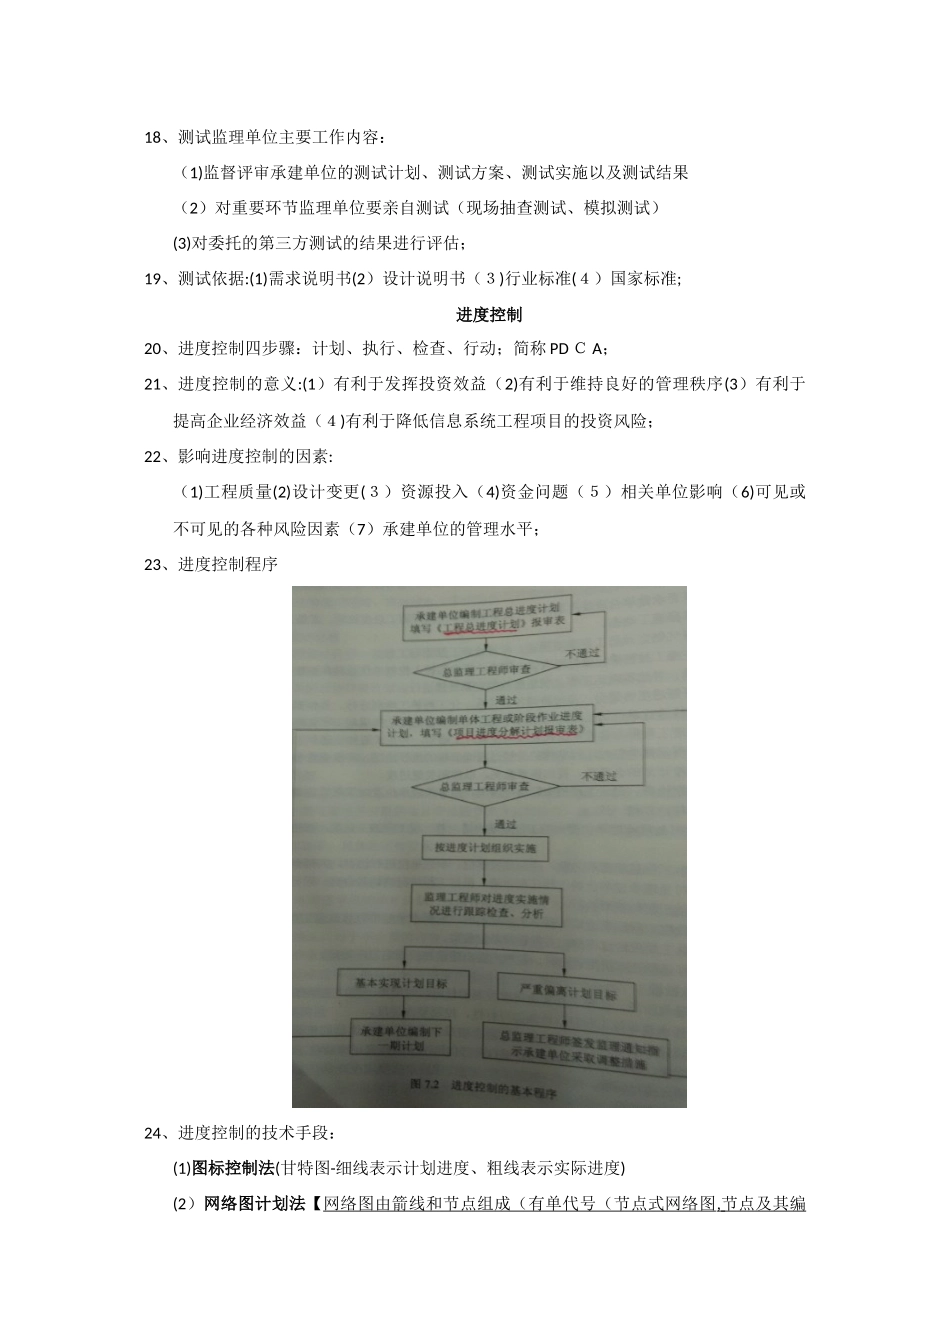 18、测试监理单位主要工作内容：
（1)监督评审承建单位的测试计划、测试方案、测试实施以及测试结果
（2）对重要环节监理单位要亲自测试（现场抽查测试、模拟测试）
(3)对委托的第三方测试的结果进行评估；
19、测试依据:(1)需求说明书(2）设计说明书（３)行业标准(４）国家标准;
进度控制
20、进度控制四步骤：计划、执行、检查、行动；简称 PDＣA；
21、进度控制的意义:(1）有利于发挥投资效益（2)有利于维持良好的管理秩序(3）有利于
提高企业经济效益（４)有利于降低信息系统工程项目的投资风险；
22、影响进度控制的因素:
（1)工程质量(2)设计变更(３）资源投入（4)资金问题（５）相关单位影响（6)可见或
不可见的各种风险因素（7）承建单位的管理水平；
23、进度控制程序
承建单位编制工程总进度计划
填写《工程总进度计划》报审表
不通过
总监理工程师审查
通过
承建单位编制单体工程或阶段作业进度
计划，填写《项目进度分解计划报审表》
不通过
总监理工程师审查
通过
按进度计划组织实施
监理工程师对进度实施情
况进行跟踪检查、分析
基本实现计划目标
严重偏离计划目标
承建单位编制下
一期计划
总监理工程师签发监理通知指
示承建单位采取调整措施
图 7.2 进度控制的基本程序
24、进度控制的技术手段：
(1)图标控制法(甘特图-细线表示计划进度、粗线表示实际进度)
(2）网络图计划法【网络图由箭线和节点组成（有单代号（节点式网络图,节点及其编